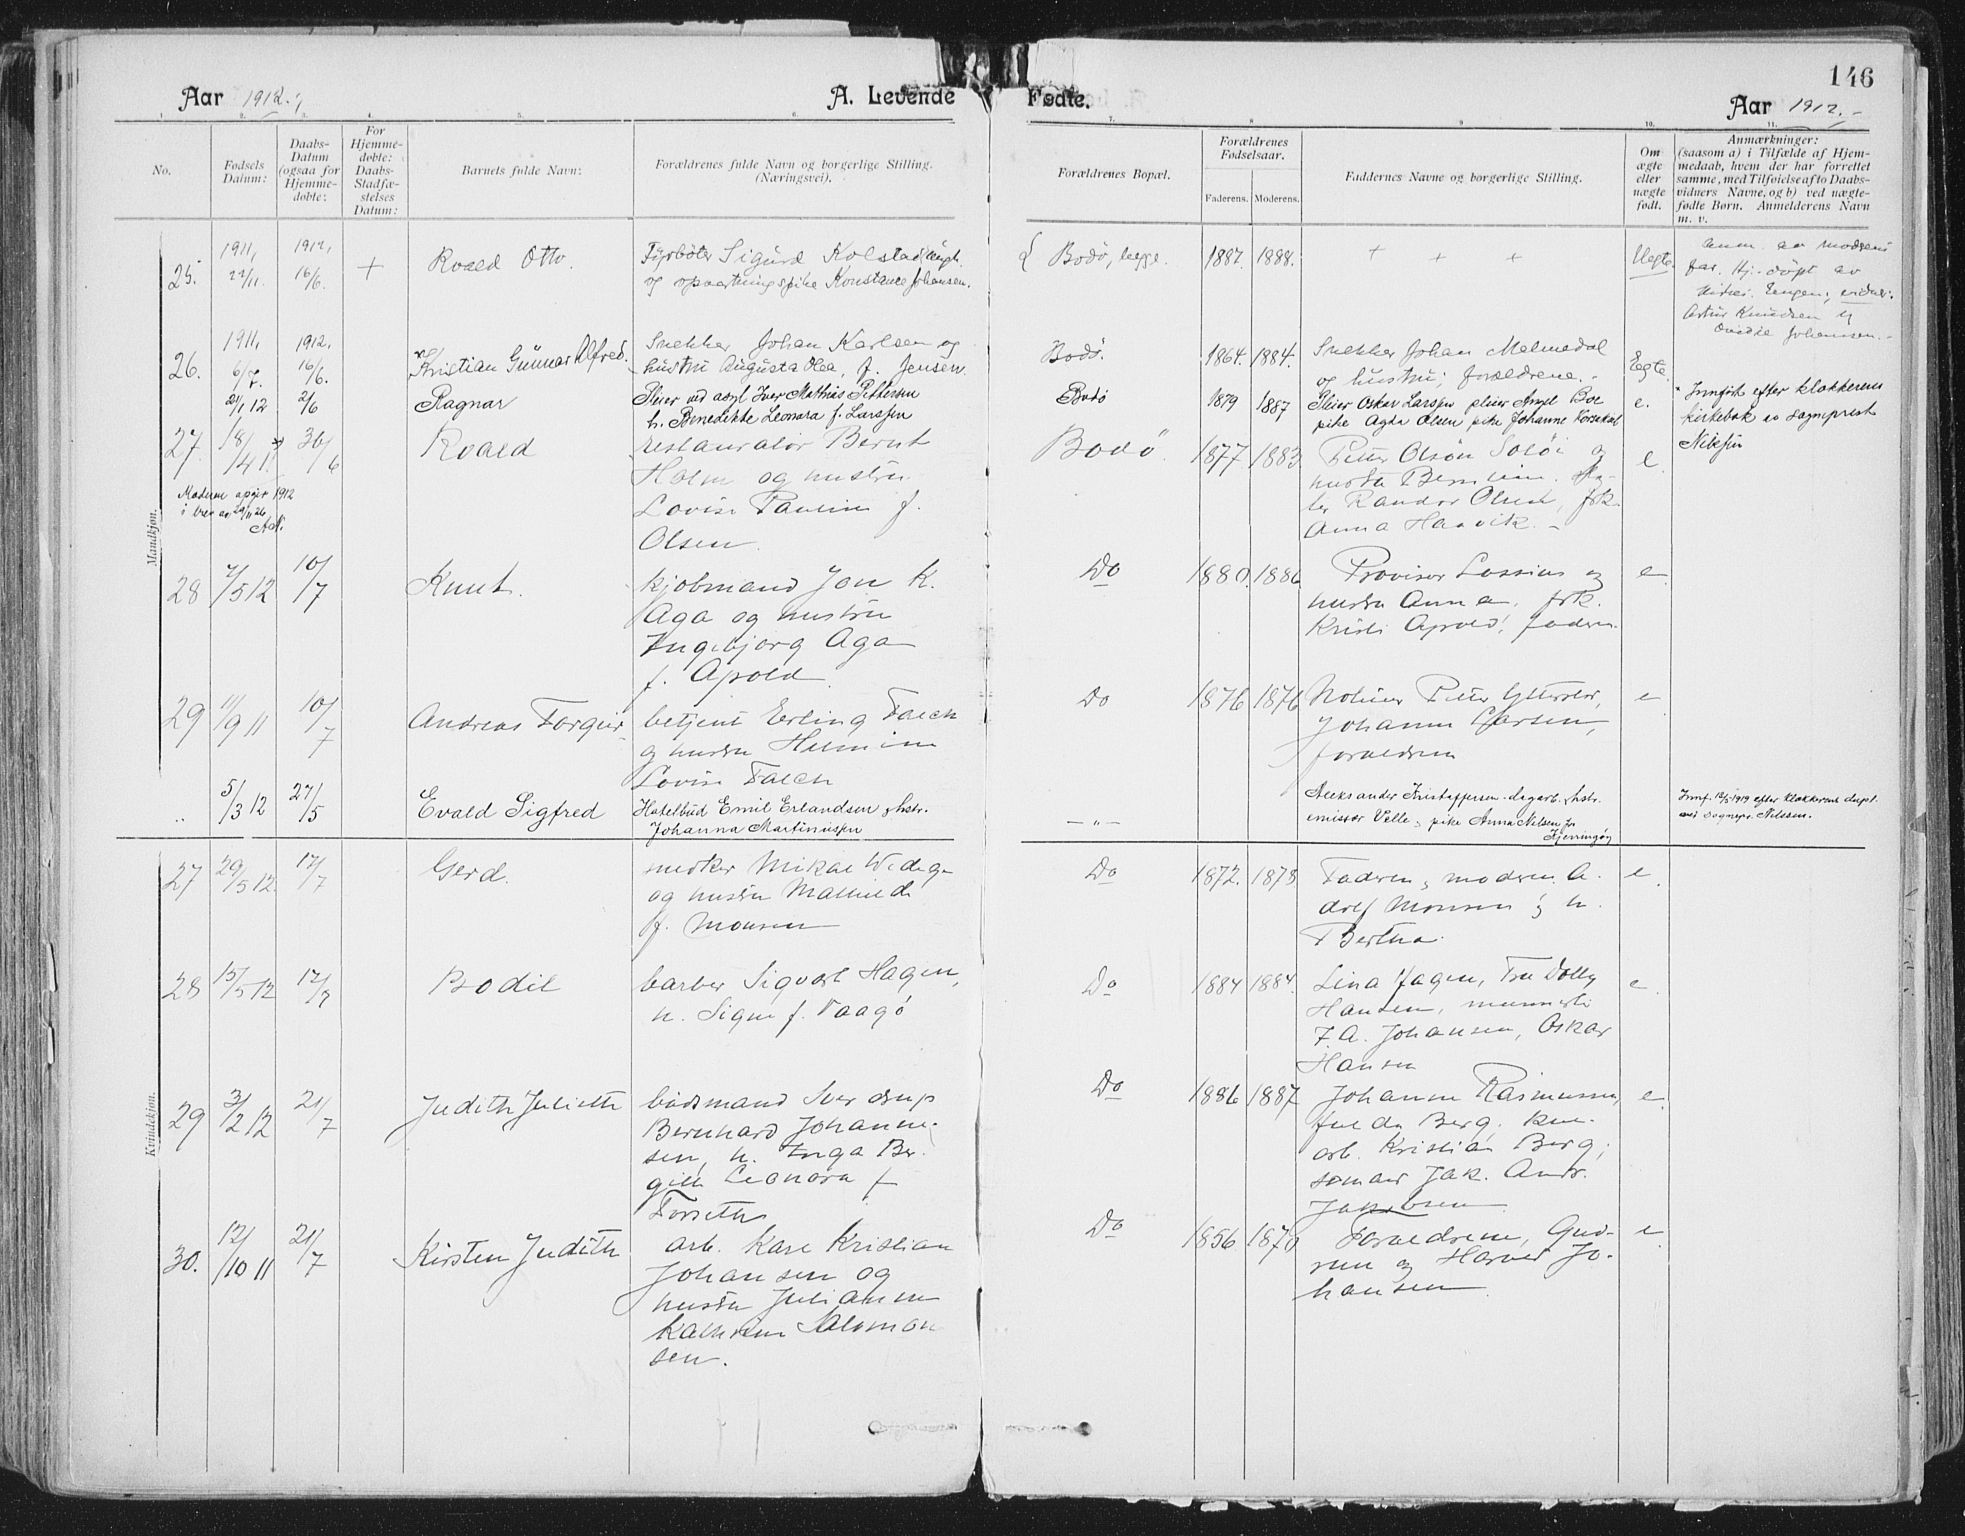 146
Aar 1912.
A. Levende Fødte.
Aar 1912.
1. 2. 3. 4. 5. 6. 7. 8. 9. 10. 11.
No.
Fødsels Datum:
Daabs-Datum (ogsaa for Hjemme-døbte:
For Hjemme-døbte: Daabs-Stadfæ-stelses Datum:
Barnets fulde Navn:
Forældrenes fulde Navn og borgerlige Stilling. (Næringsvei).
Forældrenes Bopæl.
Forældrenes Fødselsaar.
Faderens. Moderens.
Faddernes Navne og borgerlige Stilling.
Om ægte eller nægte født.
Anmærkninger:
(saasom a) i Tilfælde af Hjem-
medaab, hvem der har forrettet
samme, med Tilføielse af to Daabs-
vidners Navne, og b) ved nægte-
fødte Børn. Anmelderens Navn
m. v.
Mandkjøn.
25. 1911, 22/11. 1912, 16/6. + Roald Otto. Fyrbøter Sigurd Kolstad, ungk.
og opvartningspike Konstance Johansen.
Bodø, begge. 1887. 1888. + + + Uegte.
Anm. av moderens
far. Hj. døpt av
Engen; vidner:
Artur Knudsen og
Johansen.
26. 1911, 6/7. 1912. 16/6. Kristian Gunnar Alfred. Snekker Johan Karlsen og
hustru Augusta Olea, f. Jensen.
Bodø. 1864. 1884. Snekker Johan Melmedal
og hustru; forældrene. Egte.
21/1 12 2/6 Ragnar Pleier ved asyl Iver Mathias Pettersen
h. Benedikte Leonora f. Larssen
Bodø 1879 1887 Pleier Oskar Larssen pleier Boe
pike Agda Olsen pike Johanne e.
Innført efter klokkerens
kirkebok av sogneprest
Nilssen
27. 18/4 11 30/6 Roald restauratør Bernt
Holm og hustru
Lovise Pauline f.
Olsen
Moderen opgir 1912
i brev av 29/11 26
Bodø. 1877 1883 Peter Olsøn Soløi og
hustru
Randor Olsen, frk.
Anna Haavik. e
28 7/5 12 10/7 Knut. kjøbmand Jon K.
Aga og hustru
Ingebjørg Aga
f. Apold
Do 1880. 1886 Provisor Lossius og
hustru Anna, frk.
Kristi Apold, faderen. e
29 11/9 11 10/7 Andreas Torgeir betjent Erling Falch
og hustru Hermine
Lovise Falch
Do 1876 1876 Peter
Johanne Larsen,
forældrene e
" 5/3 12 27/5 Evald Sigfred Hotelbud Emil Erlandsen & hstr.
Johanna Martinussen
— " — Aleksander Kristoffersen dagarb. & hstr.
emissær Velle, pike Anna Nilsen fr.
Kjerringøy
Innf. 12/5 1919 efter klokkerens dupl.
ved sognepr. Nilssen.
Kvindekjøn.
27 29/5 12. 17/7 Gerd. Mikal
og hustru Mathilde
f. Monsen
Do 1872. 1878 Faderen, moderen. A-
dolf Monsen og h.
Bertha. e.
28 15/5 12 17/7 Bodil barber Sigvart Hagen,
h. Signe f. Vaagø
Do 1884 1884. Lina Hagen, Fru Dolly
Hansen,
F. A. Johansen, Oskar
Hansen e.
29 3/2 12 21/7 Judith Juliette baadsmand Sverdrup
Bernhard Johanne-
sen, h. Inga Ber-
Leonora f.
Forseth
Do 1886 1887 Johanne Rasmussen,
Berg,
arb. Kristian Berg,
sømand Jak. Andr.
Jakobsen e
30. 12/10 11 21/7 Kirsten Judith arb. Kare Kristian
Johansen og
hustru Julianne
Kathrine Salomon
sen.
Do 1856 1870 Forældrene, Gud-
run og Harald Jo-
hansen e